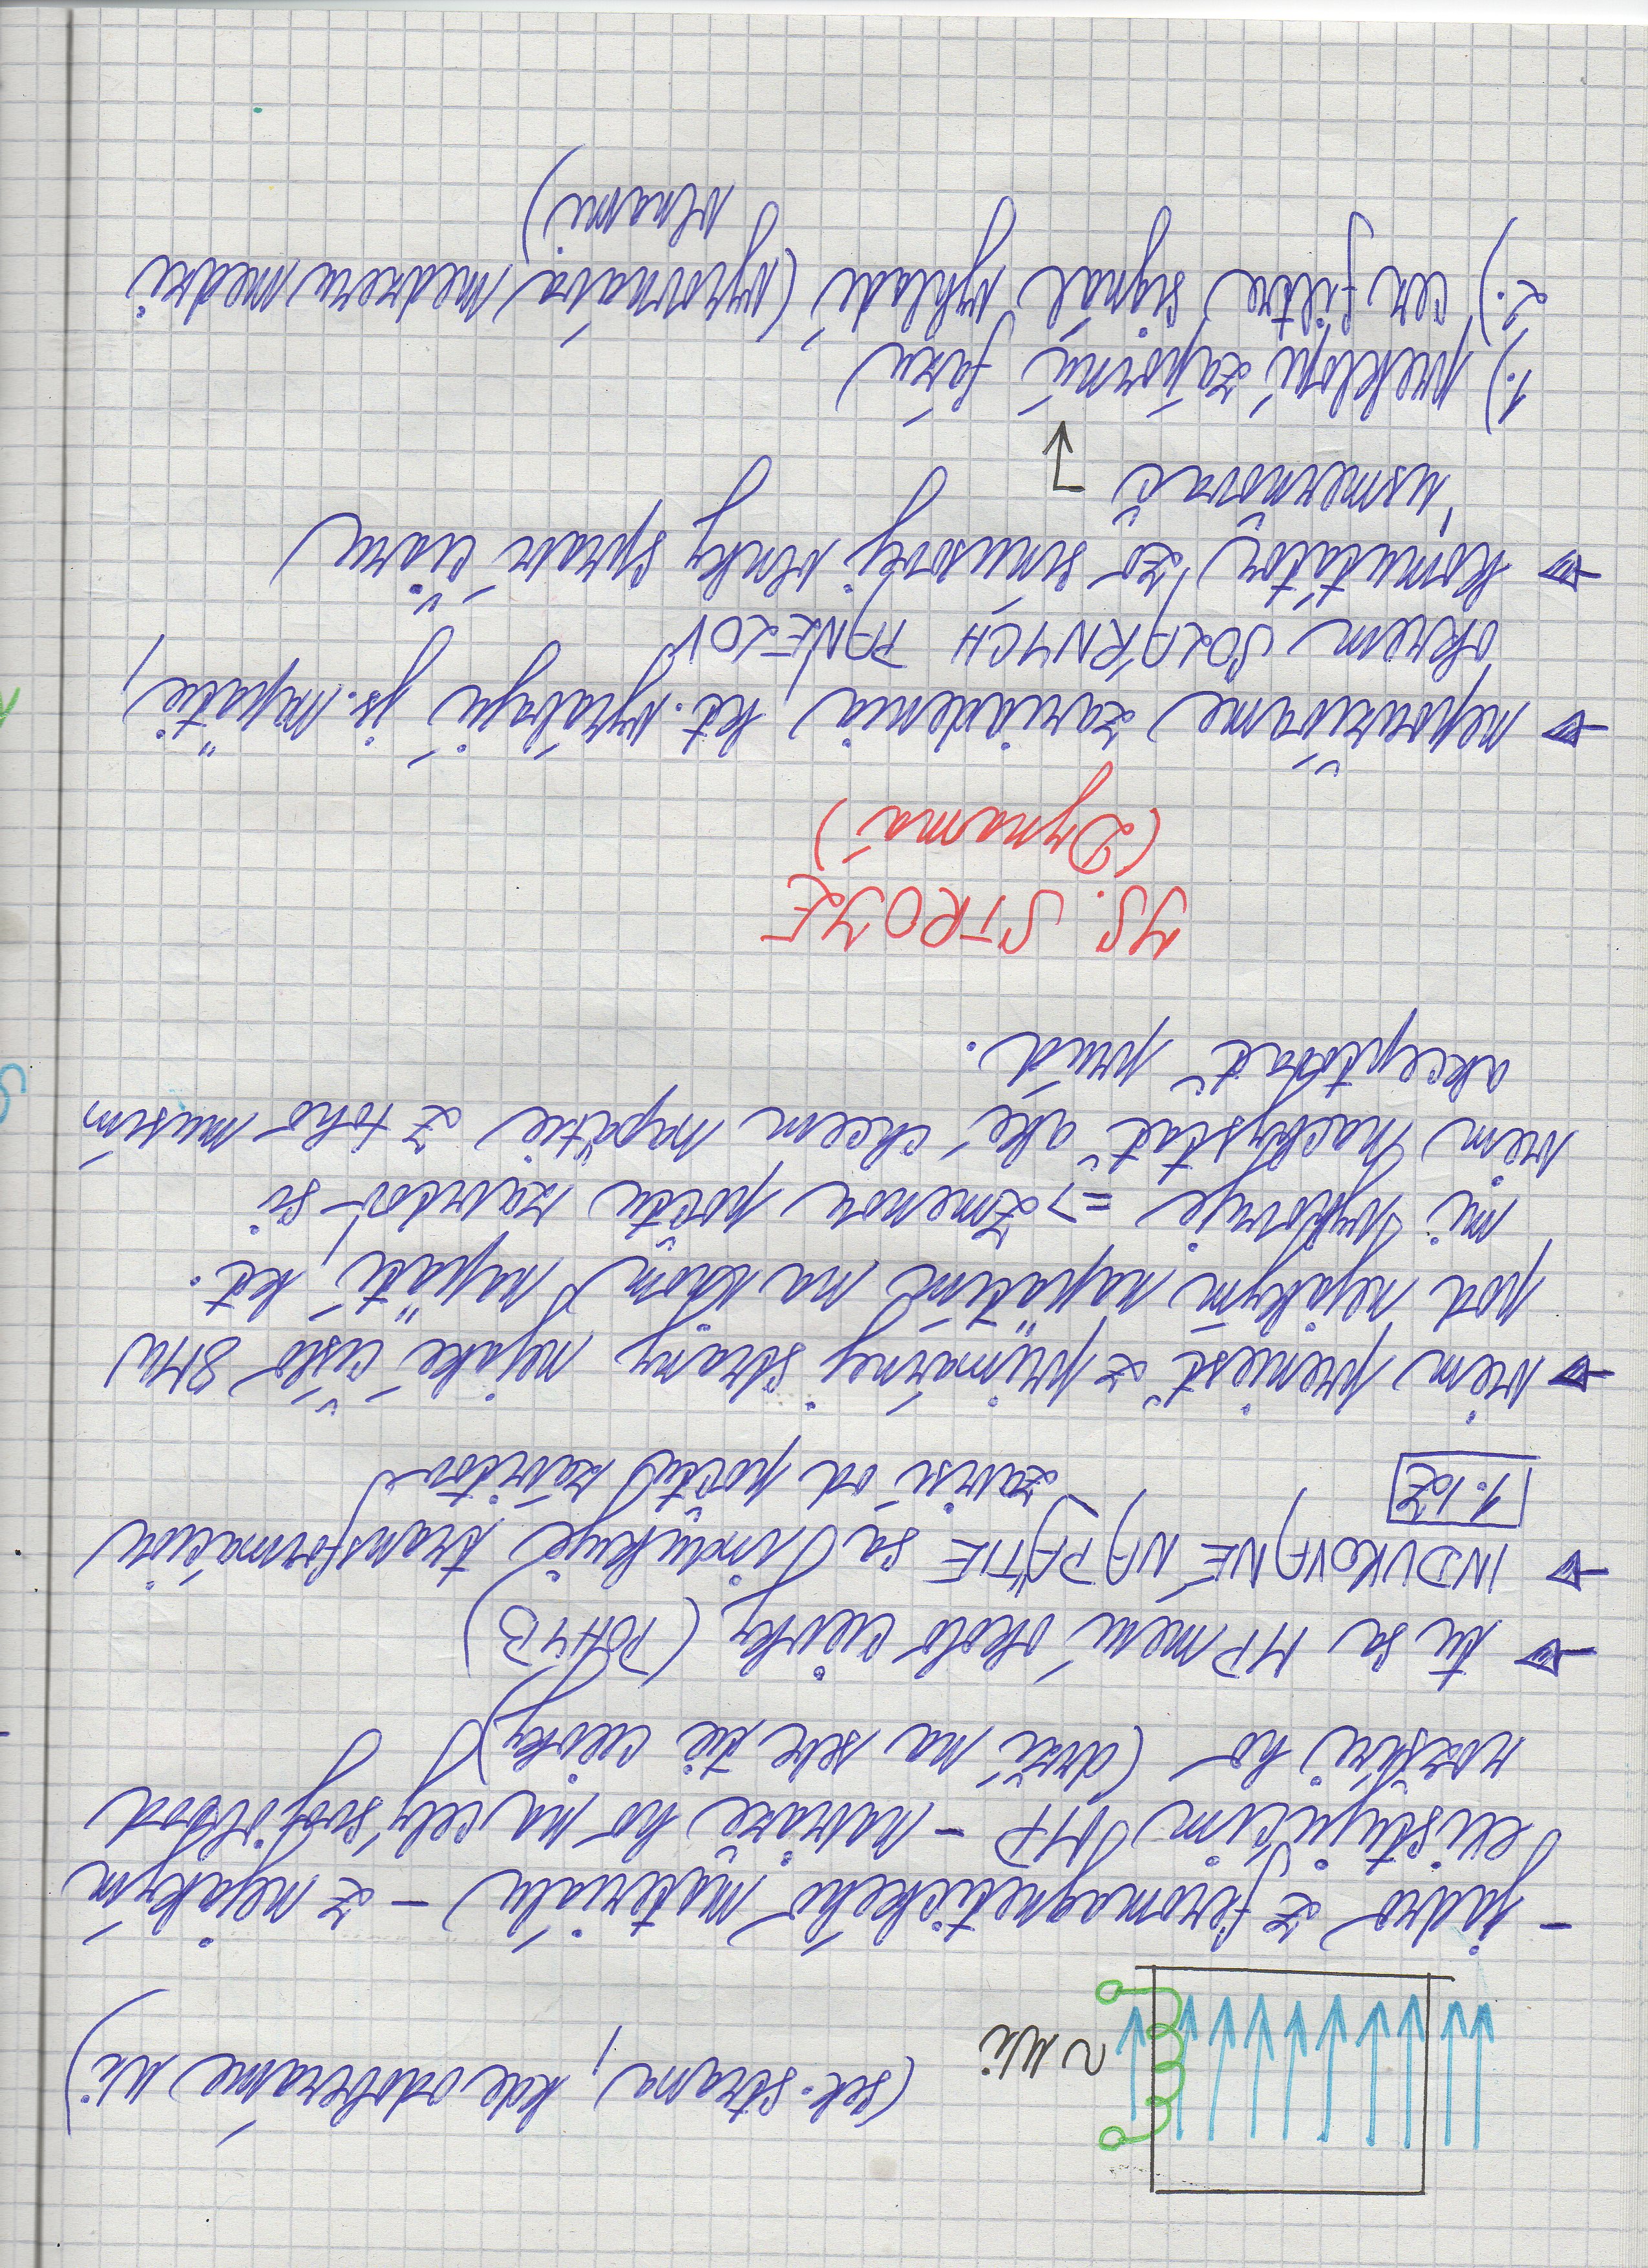 ~ Ui
(sek. strana, kde odoberáme Ui)
- jadro z feromagnetického materiálu - z nejakým
existujúcim MP - naviaže ho na celý svoj obvod
rozšíri ho (drží na sebe tie cievky)
tu sa MP mení okolo cievky (POHYB)
INDUKOVANÉ NAPÄTIE sa indukuje transformáciou
1. IZ
závisí od počtu závitov
viem preniesť z primárnej strany nejaké číslo 8MW
pod nejakým napätím na inom napätí, kt.
mi vyhovuje => Zmenou počtu závitov si
viem nachystať aké chcem napätie z toho musím
akceptovať prúd.
JS. STROJE
(Dynamá)
nepoužívame zariadenia, kt. vyrábajú js. napätie,
okrem SOLÁRNYCH PANELOV
komutátor zo sínusovej vlnky spraví čiaru
usmerňovač
1.) preklopí zápornú fázu
2.) cez filtre signál vyhladí (vyrovnáva medzeru medzi
vlnami)